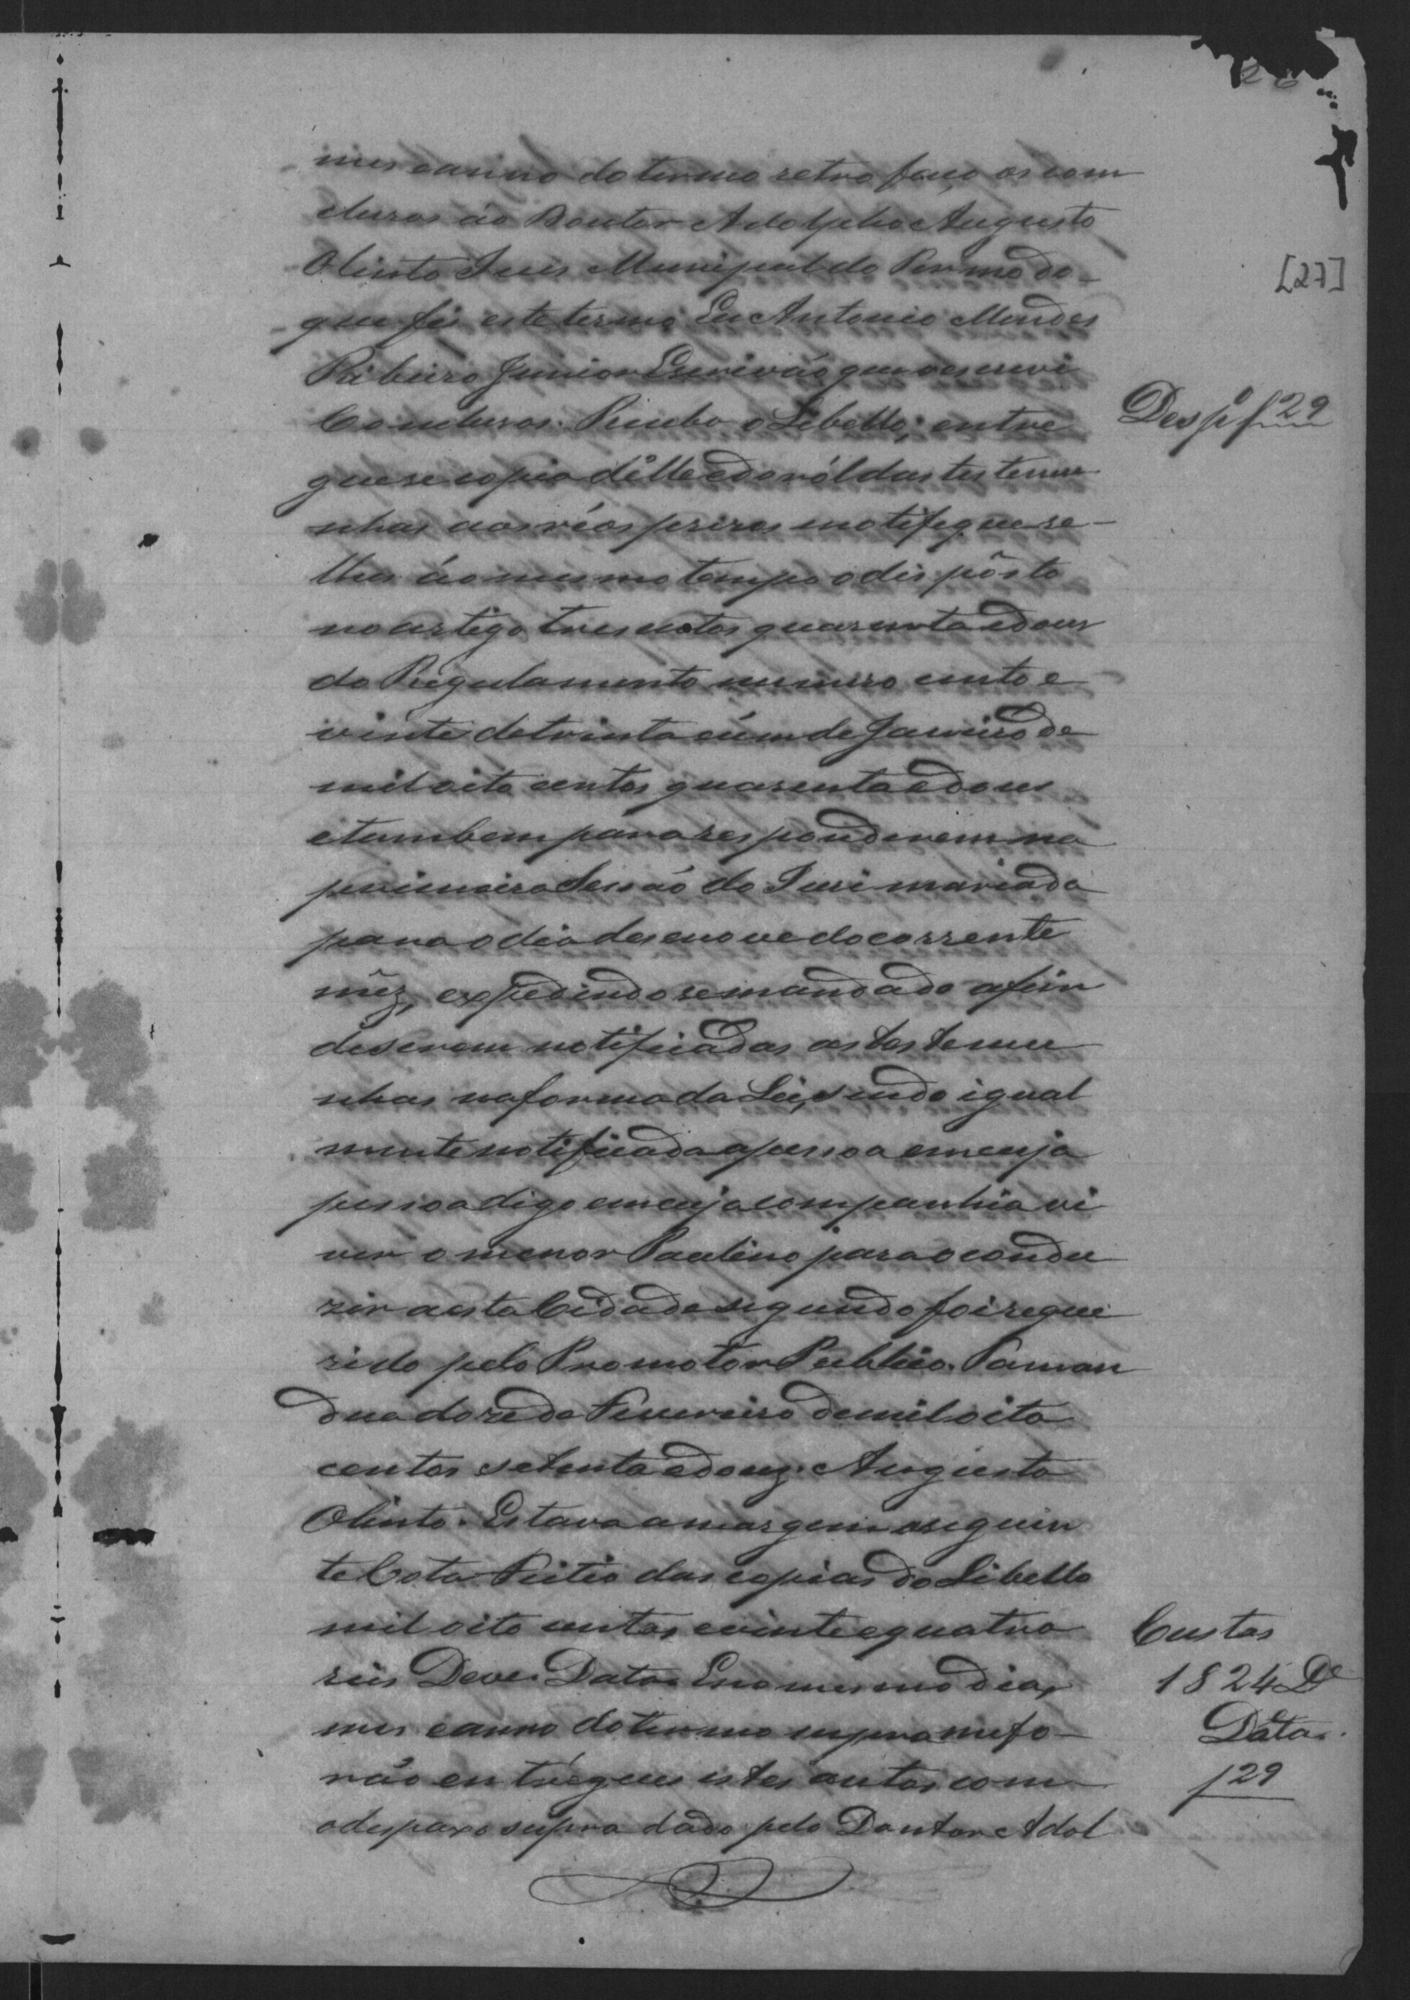 26
[27]
mes e anno do termo retro faço os con
clusos áo Doutor Adolpho Augusto
Olinto Juis Municipal do Termo do
que fis este termo Eu Antonio Mendes
Ribeiro Junior Escrivão que o escrevi
Conclusos. Recebo o Libello; entre
Desp.º f 29
gue se copia délle e do ról das testemu
nhas aos réos prezos notifique se
lhes áo mesmo tempo o dispôsto
no artigo tresentos quarenta e dous
do Regulamento numero cento e
vinte de trinta e úm de Janeiro de
mil oito centos quarenta e dous
e tambem para responderem na
primeira Sessão do Juri marcada
para o dia desenove do corrente
mêz, expedindo se mandado afim
de serem notificadas as testemu
nhas na forma da Lei, sendo igual
mente notificada a pessoa em cuja
pessoa digo em cuja companhia vi
ver o menor Paulino para o condu
zir a esta Cidade segundo foi reque
rido pelo Promotor Publico. Taman
dua doze de Fevereiro de mil oito
centos setenta e douz. Augusto
Olinto. Estava a margem a seguin
te Cota Feitio das copias do Libello
mil oito centos e vinte e quatro
Custas
reis Deve. Data. E no mesmo dia,
1824 De
mes e anno do termo supra me fo
Data.
rão entrégues estes autos com
f 29
o despaxo supra dado pelo Doutor Adol